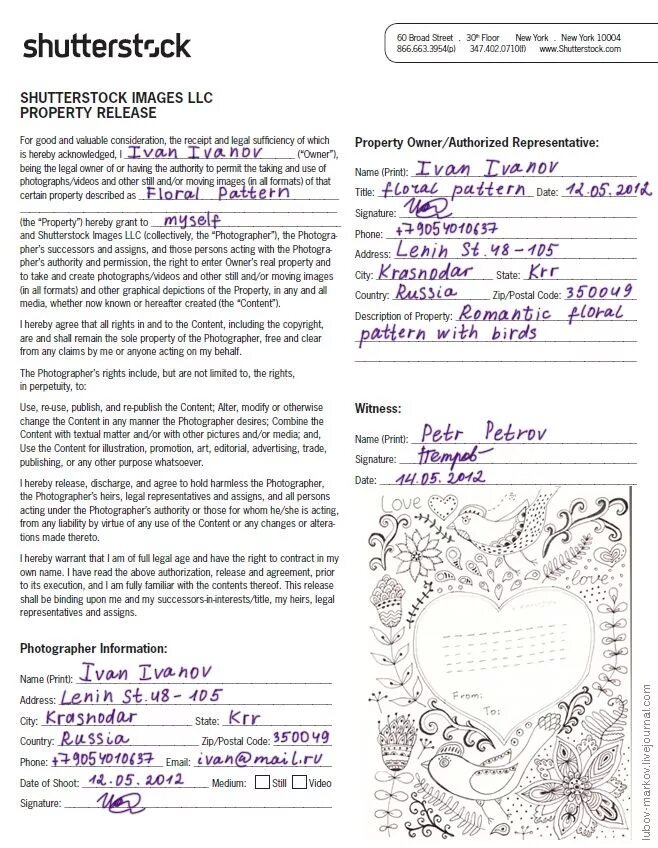 shutterstock
60 Broad Street . 30th Floor New York . New York 10004
866.663.3954(p) 347.402.0710(f) www.Shutterstock.com
SHUTTERSTOCK IMAGES LLC
PROPERTY RELEASE
For good and valuable consideration, the receipt and legal sufficiency of which
is hereby acknowledged, I Ivan Ivanov ("Owner"),
being the legal owner of or having the authority to permit the taking and use of
photographs/videos and other still and/or moving images (in all formats) of that
certain property described as Floral Pattern
(the "Property") hereby grant to myself
and Shutterstock Images LLC (collectively, the "Photographer"), the Photogra-
pher's successors and assigns, and those persons acting with the Photogra-
pher's authority and permission, the right to enter Owner's real property and
to take and create photographs/videos and other still and/or moving images
(in all formats) and other graphical depictions of the Property, in any and all
media, whether now known or hereafter created (the "Content").
I hereby agree that all rights in and to the Content, including the copyright,
are and shall remain the sole property of the Photographer, free and clear
from any claims by me or anyone acting on my behalf.
The Photographer's rights include, but are not limited to, the rights,
in perpetuity, to:
Use, re-use, publish, and re-publish the Content; Alter, modify or otherwise
change the Content in any manner the Photographer desires; Combine the
Content with textual matter and/or with other pictures and/or media; and,
Use the Content for illustration, promotion, art, editorial, advertising, trade,
publishing, or any other purpose whatsoever.
I hereby release, discharge, and agree to hold harmless the Photographer,
the Photographer's heirs, legal representatives and assigns, and all persons
acting under the Photographer's authority or those for whom he/she is acting,
from any liability by virtue of any use of the Content or any changes or altera-
tions made thereto.
I hereby warrant that I am of full legal age and have the right to contract in my
own name. I have read the above authorization, release and agreement, prior
to its execution, and I am fully familiar with the contents thereof. This release
shall be binding upon me and my successors-in-interests/title, my heirs, legal
representatives and assigns.
Photographer Information:
Name (Print): Ivan Ivanov
Address: Lenin St. 48 - 105
City: Krasnodar State: Krr
Country: Russia Zip/Postal Code: 350049
Phone: +79054010637 Email: ivan@mail.ru
Date of Shoot: 12.05.2012 Medium: Still Video
Signature:
Property Owner/Authorized Representative:
Name (Print): Ivan Ivanov
Title: floral pattern Date: 12.05.2012
Signature:
Phone: +79054010637
Address: Lenin St. 48 - 105
City: Krasnodar State: Krr
Country: Russia Zip/Postal Code: 350049
Description of Property: Romantic floral
pattern with birds
Witness:
Name (Print): Petr Petrov
Signature:
Date: 14.05.2012
Love
Love
From:
To:
lubov-markov.livejournal.com